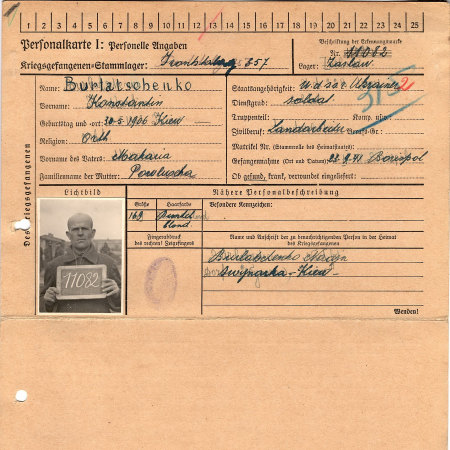 1 2 3 4 5 6 7 8 9 10 11 12 13 14 15 16 17 18 19 20 21 22 23 24 25
Personalkarte I: Personelle Angaben
Beschriftung der Erkennungsmarke
Nr. 11082
Kriegsgefangenen-Stammlager: Frontstalag 357
Lager: Zaslau
Des Kriegsgefangenen
Name: Burlatschenko
Vorname: Konstantin
Geburtstag und -ort: 10.5.1906 Kiew
Religion: Orth
Vorname des Vaters: Makaria
Familienname der Mutter:
Staatsangehörigkeit: U.d.S.S.R. Ukrainer
Dienstgrad: soldat
Truppenteil: Komp. usw.:
Zivilberuf: Landarbeiter Berufs-Gr.:
Matrikel Nr. (Stammrolle des Heimatstaates):
Gefangennahme (Ort und Datum): 22.9.41 Borispol
Ob gesund, krank, verwundet eingeliefert:
Lichtbild
11082
Nähere Personalbeschreibung
Größe
Haarfarbe
Besondere Kennzeichen:
169
Dunkelblond
Fingerabdruck
des rechten! Zeigefingers!
Name und Anschrift der zu benachrichtigenden Person in der Heimat
des Kriegsgefangenen
Burlatschenko
Kiew
Wenden!